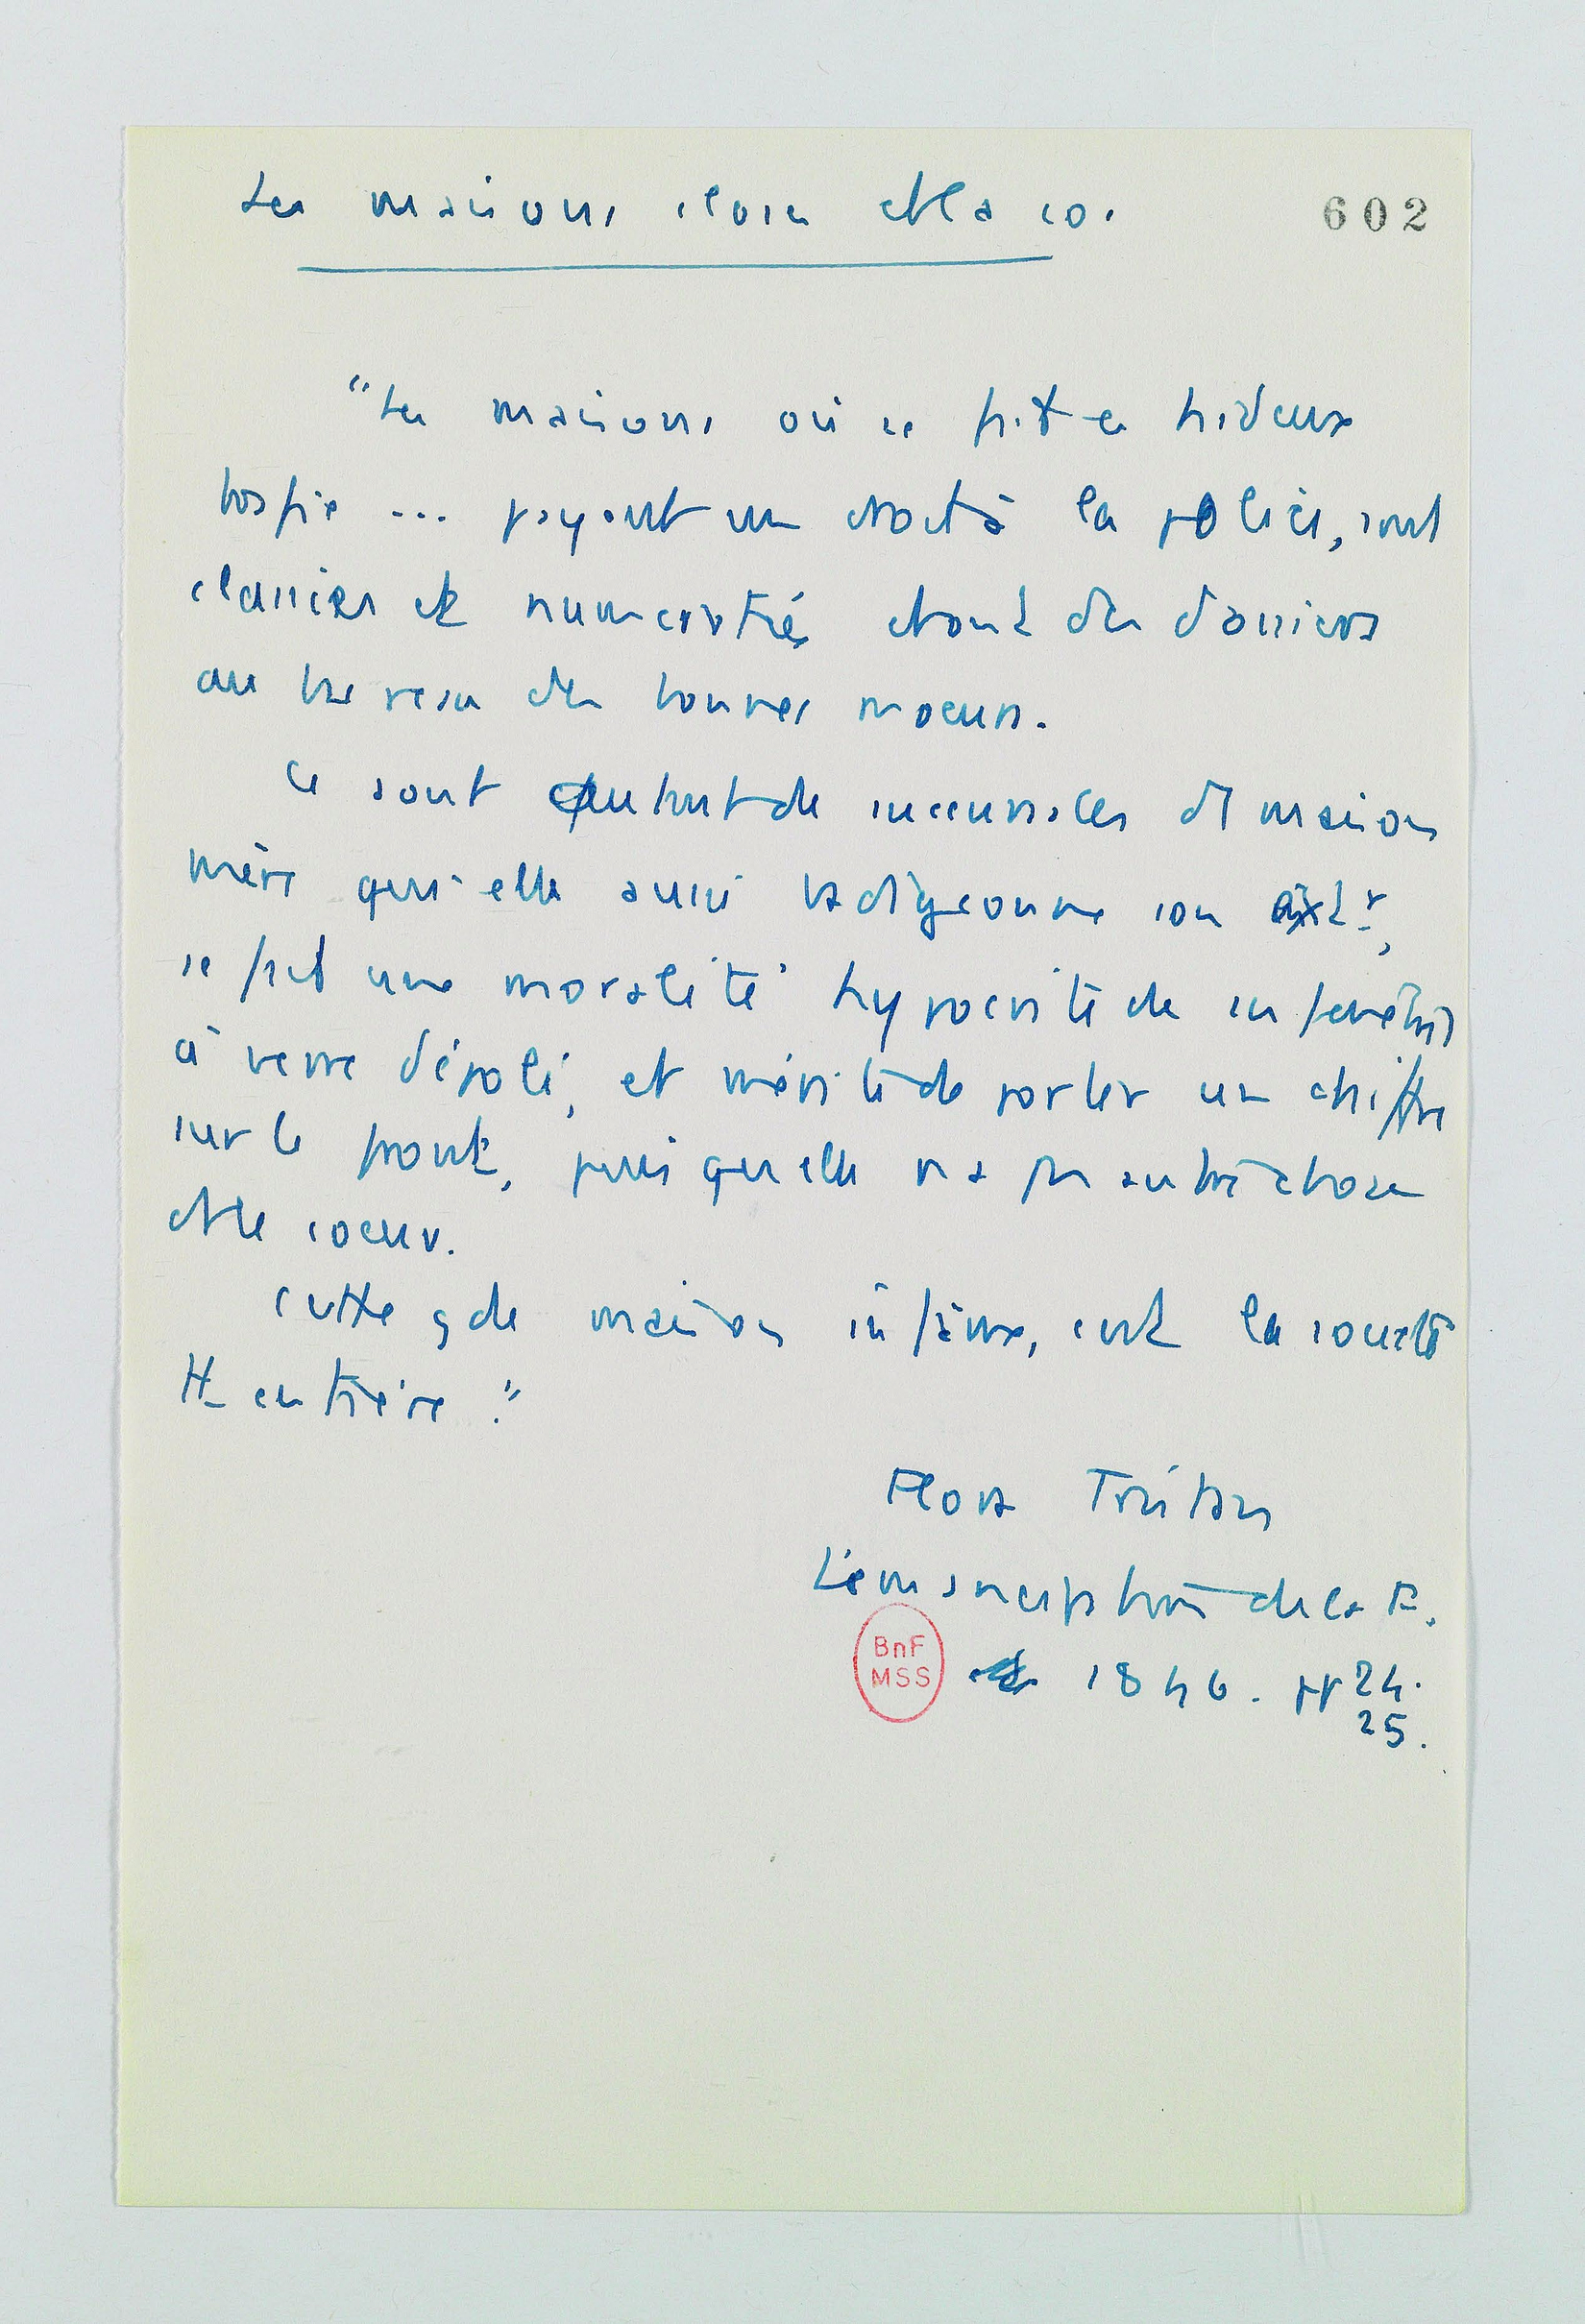 Les maisons closes et la so.
602
"Les maisons où se fait ce hideux
trafic ... payent un droit à la police, sont
classées et numérotées et ont des dossiers
au bureau des bonnes moeurs.
Ce sont autant de succursales d'1 maison
mère qui elle aussi badigeonne son
se fait une moralité hypocrite de ses fenêtres
à verre dépoli, et mérite de porter un chiffre
sur le front, puis qu'elle n'a pas autre chose
et le coeur.
Cette gde maison infâme, c'est la société
tt entière."
Flora Tristan
L'émancipation de la F.
1846. pp 24.
25.
BnF
MSS